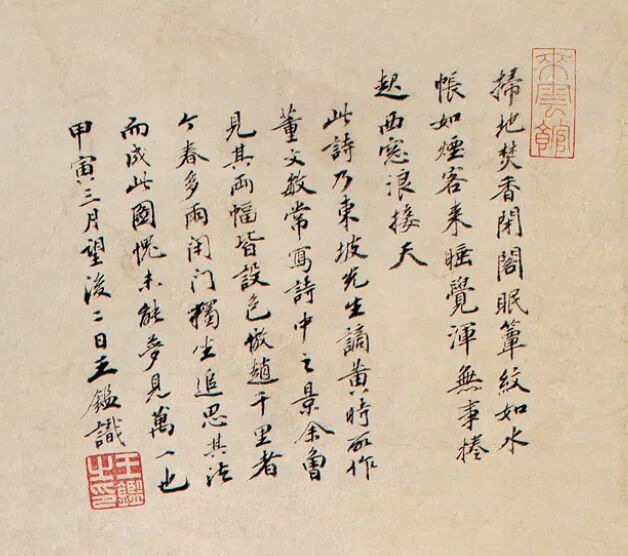 來雲館
掃地焚香閉閣眠簟紋如水
帳如煙客来睡覺渾無事捲
起西窓浪接天
此詩乃東坡先生謫黄時所作
董文敏常寫詩中之景余曾
見其兩幅皆設色倣趙千里者
今春多雨闭门獨坐追思其法
而成此圖愧未能夢見萬一也
甲寅三月望後二日王鑑識
王鑑之印